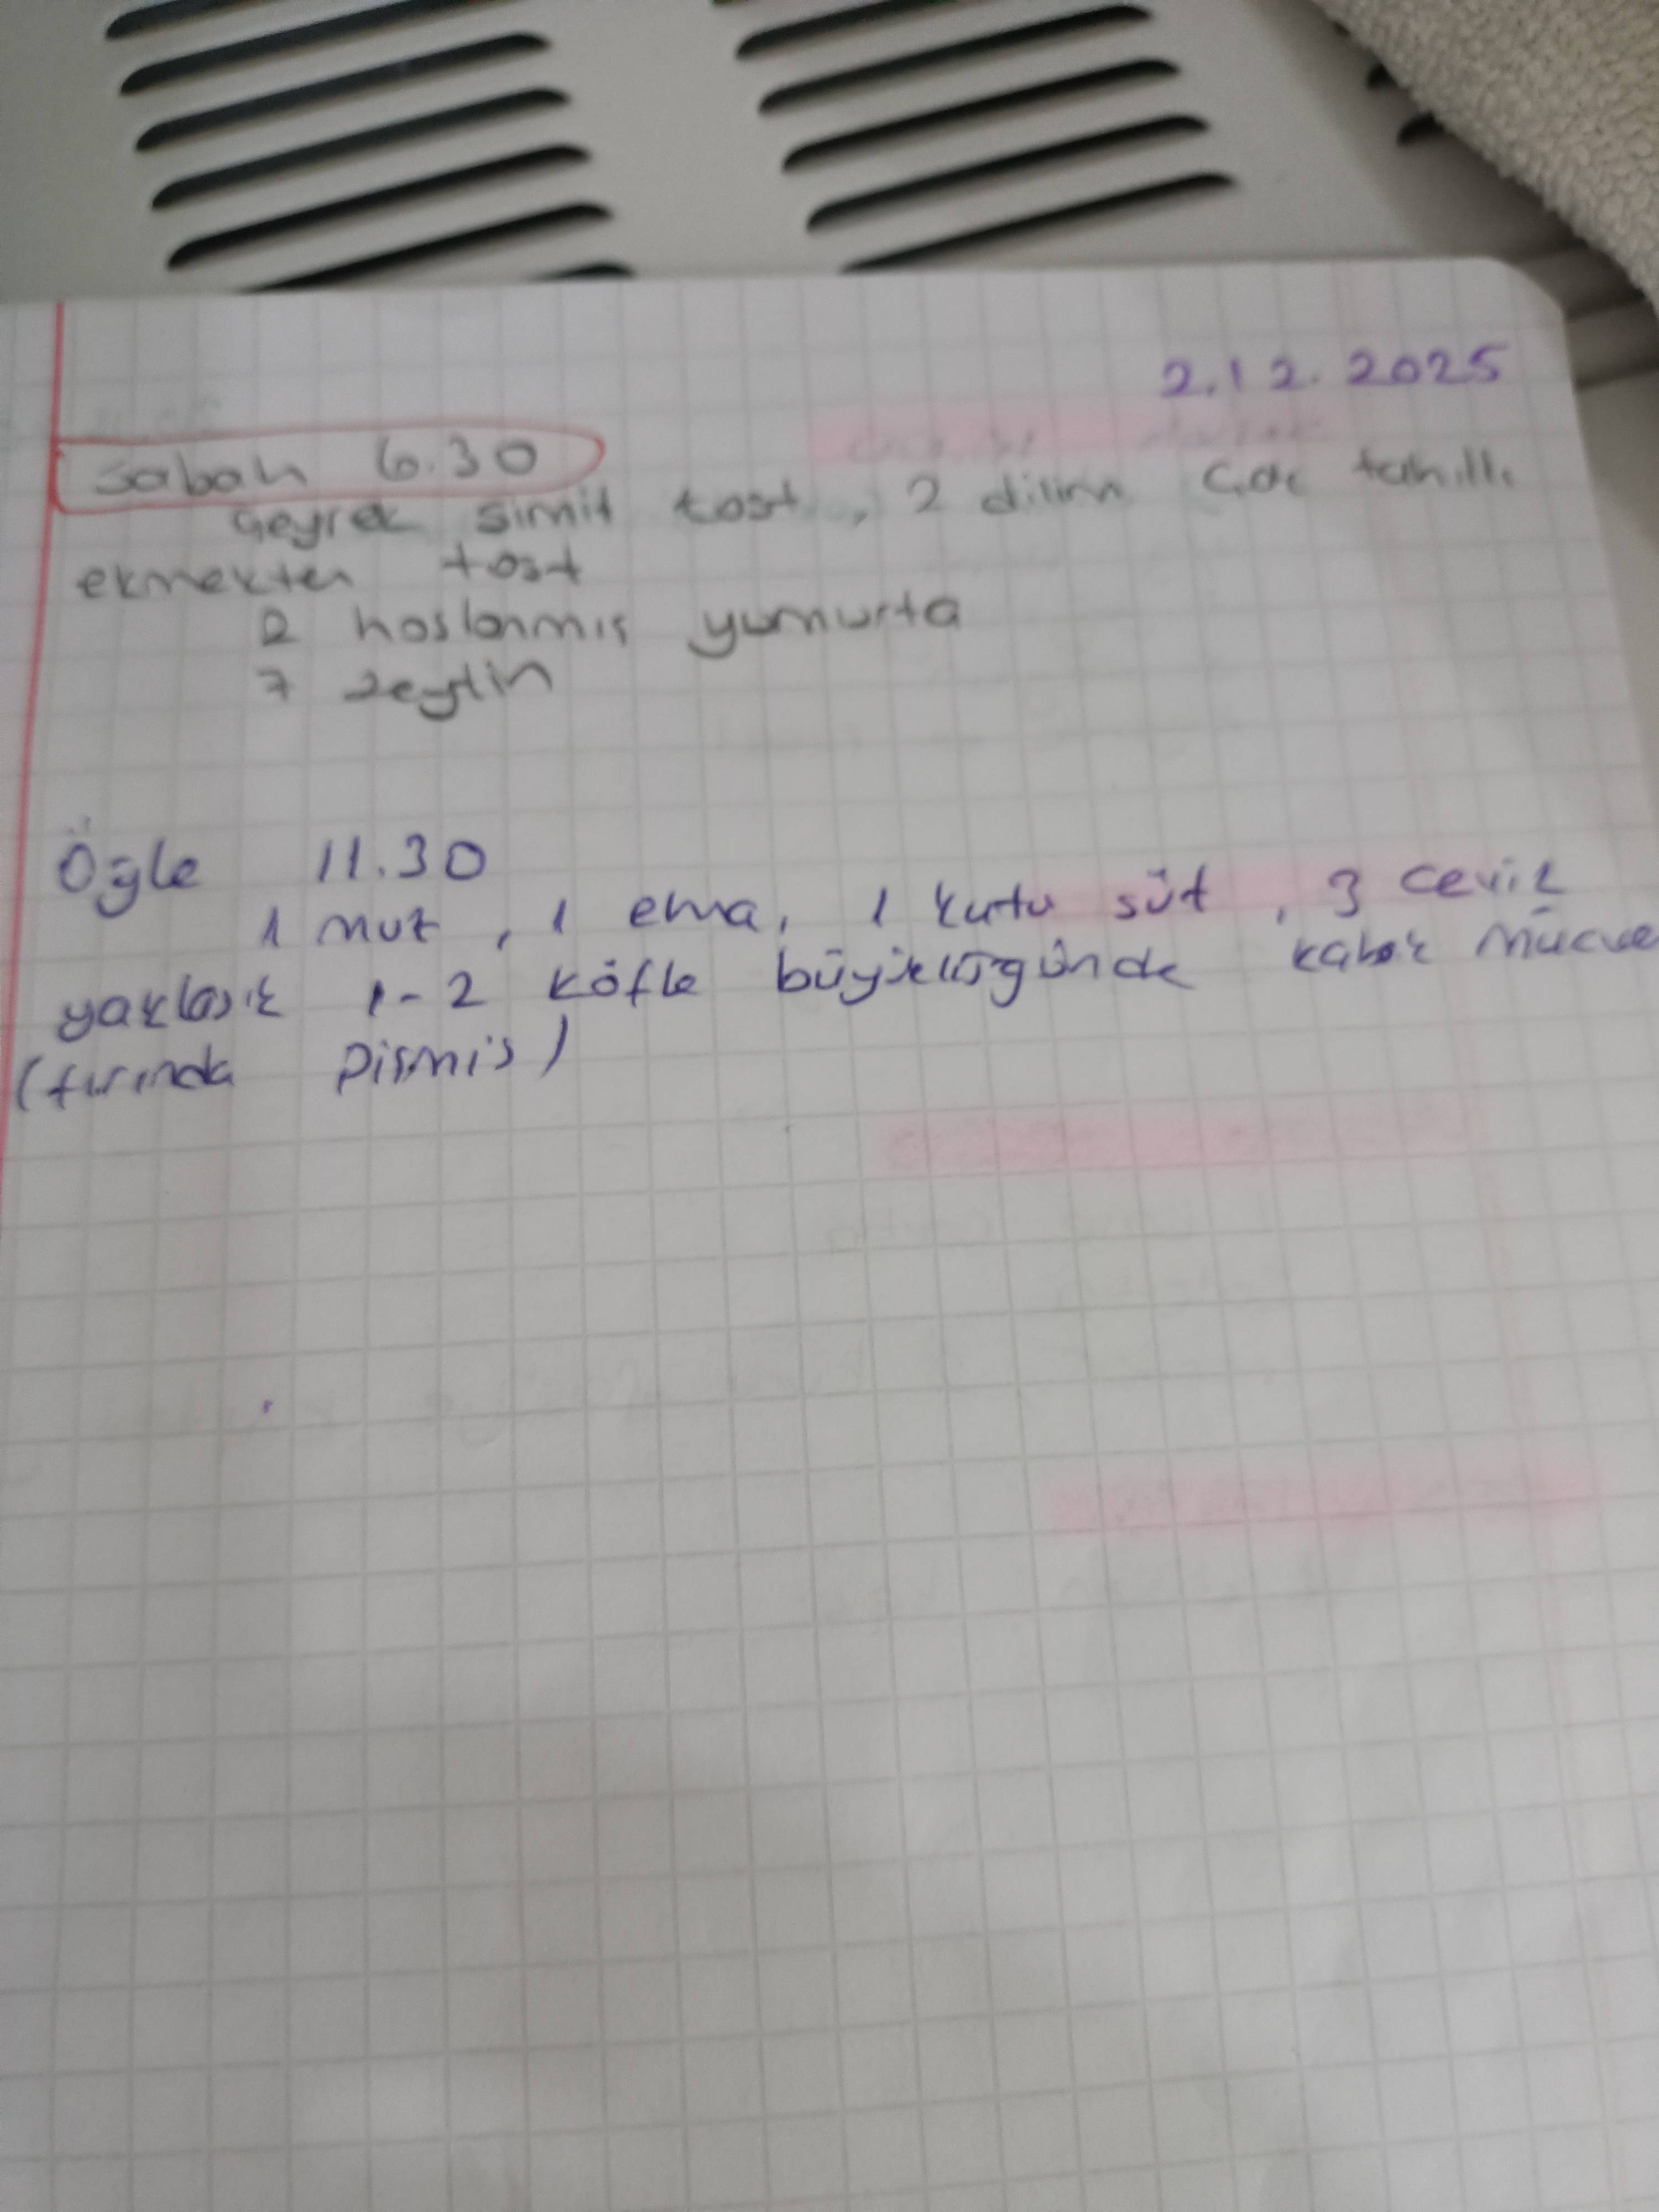 2.12.2025
Sabah 6.30
Çeyrek simit tost, 2 dilim Çok tahıllı
ekmekten tost
2 haşlanmış yumurta
7 zeytin
Öğle 11.30
1 muz, 1 elma, 1 kutu süt, 3 ceviz
yaklaşık 1-2 köfte büyüklüğünde kabak mücve
(fırında pişmiş)